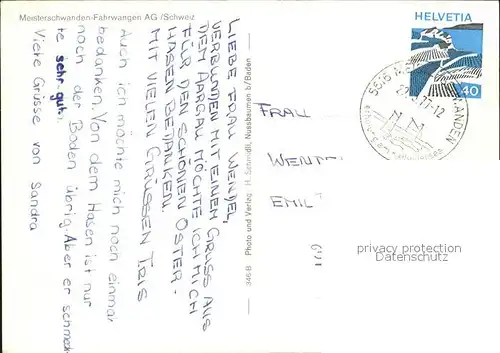 Meisterschwanden-Fahrwangen AG /Schweiz
HELVETIA
40
5616
ANDEN
LIEBE FRAU WENDEL,
VERBUNDEN MIT EINEM GRUSS AUS
DEM AARGAU MÖCHTE ICH MICH
FÜR DEN SCHÖNEN OSTER-
HASEN BEDANKEN.
MIT VIELEN GRÜSSEN IRIS
Auch ich möchte mich noch einmal
bedanken. Von dem Hasen ist nur
noch der Boden übrig. Aber er schmeck
te sehr gut.
Viele Grüsse von Sandra
346 B Photo und Verlag: H. Schmidli, Nussbaumen b/Baden
FRAU
WEN
EMIL
privacy protection
Datenschutz